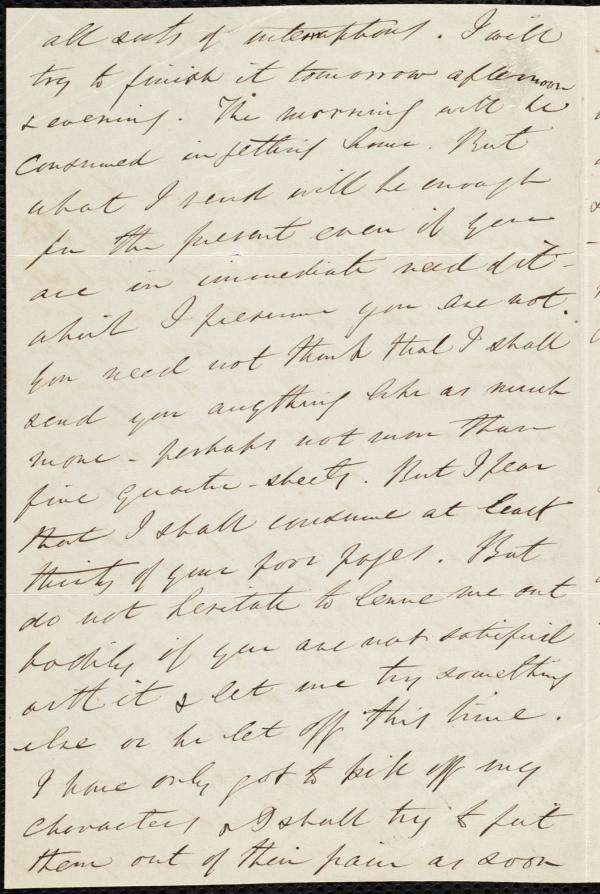 all sorts of interruptions. I will
try to finish it tomorrow afternoon
& evening. The morning will be
consumed in getting home. But
what I send will be enough
for the present even if you
are in immediate need of it -
which I presume you are not.
You need not think that I shall
send you anything like as much
more - perhaps not more than
five quarto - sheets. But I fear
that I shall consume at least
thirty of your poor pages. But
do not hesitate to leave me out
bodily if you are not satisfied
with it & let me try something
else or be let off this time.
I have only got to kill off my
characters & I shall try to put
them out of their pain as soon